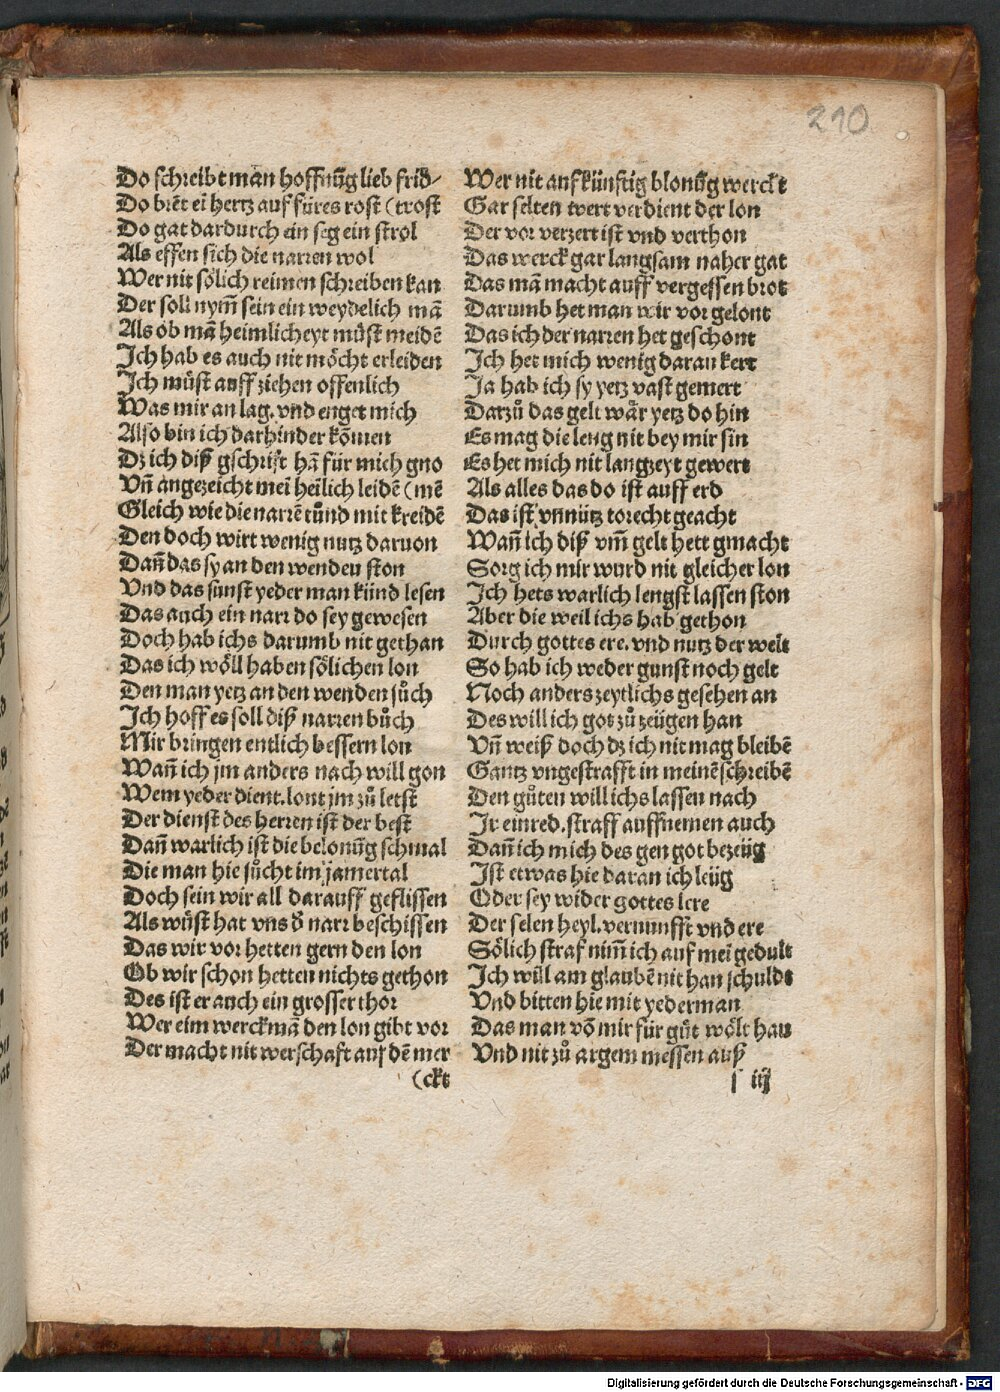 210
Do schreibt man hoffnūg lieb frid/
Do brēt ei hertz auf füres rost (trost
Do gat dardurch ein seg ein strol
Als effen sich die narren wol
Wer nit sölich reimen schreiben kan
Der soll nym̄ sein ein weydelich mā
Als ob mā heimlicheyt müst meidē
Ich hab es auch nit möcht erleiden
Ich müst auff ziehen offenlich
Was mir an lag. vnd enget mich
Also bin ich darhinder kōmen
Dz ich diß gschrift hā für mich gno
Vn̄ angezeicht mei heīlich leidē (mē
Gleich wie die narrē tůnd mit kreidē
Den doch wirt wenig nutz daruon
Dan̄ das sy an den wenden ston
Vnd das sunst yeder man künd lesen
Das auch ein narr do sey gewesen
Doch hab ichs darumb nit gethan
Das ich wöll haben sölichen lon
Den man yetz an den wenden sůch
Ich hoff es soll diß narren bůch
Mir bringen entlich bessern lon
Wan̄ ich jm anders nach will gon
Wem yeder dient. lont jm zů letst
Der dienst des herren ist der best
Dan̄ warlich ist die belonūg schmal
Die man hie sůcht im jamertal
Doch sein wir all darauff geflissen
Als wüst hat vns d̄ narr beschissen
Das wir vor hetten gern den lon
Ob wir schon hetten nichts gethon
Des ist er auch ein grosser thor
Wer eim werckmā den lon gibt vor
Der macht nit werschaft auf dē mer
(ckt
Wer nit auf künftig blonūg werckt
Gar selten wert verdient der lon
Der vor verzert ist vnd verthon
Das werck gar langsam naher gat
Das mā macht auff vergessen brot
Darumb het man mir vor gelont
Das ich der narren het geschont
Ich het mich wenig daran kert
Ja hab ich sy yetz vast gemert
Darzů das gelt wär yetz do hin
Es mag die leng nit bey mir sin
Es het mich nit lang zeyt gewert
Als alles das do ist auff erd
Das ist vnnütz torecht geacht
Wan̄ ich diß vm̄ gelt hett gmacht
Sorg ich mir wurd nit gleicher lon
Ich hets warlich lengst lassen ston
Aber die weil ichs hab gethon
Durch gottes ere. vnd nutz der welt
So hab ich weder gunst noch gelt
Noch anders zeytlichs gesehen an
Des will ich got zů zeügen han
Vn̄ weiß doch dz ich nit mag bleibē
Gantz vngestrafft in meinē schreibē
Den gůten will ichs lassen nach
Ir einred. straff auffnemen auch
Dan̄ ich mich des gen got bezeüg
Ist etwas hie daran ich leüg
Oder sey wider gottes lere
Der selen heyl. vernunfft vnd ere
Sölich straf nim̄ ich auf mei gedult
Ich will am glaubē nit han schuldt
Vnd bitten hie mit yederman
Das man vō mir für gůt wölt han
Vnd nit zů argem messen auß
s iij
Digitalisierung gefördert durch die Deutsche Forschungsgemeinschaft - DFG